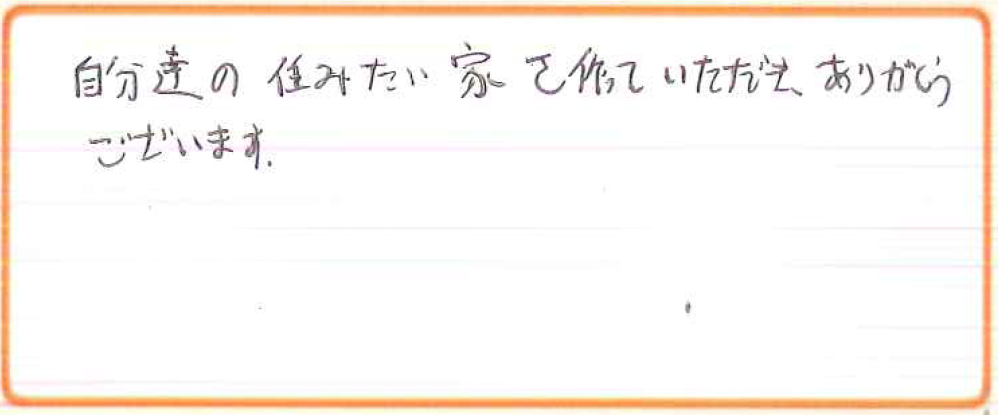 自分達の住みたい家を作っていただき、ありがとう
ございます。